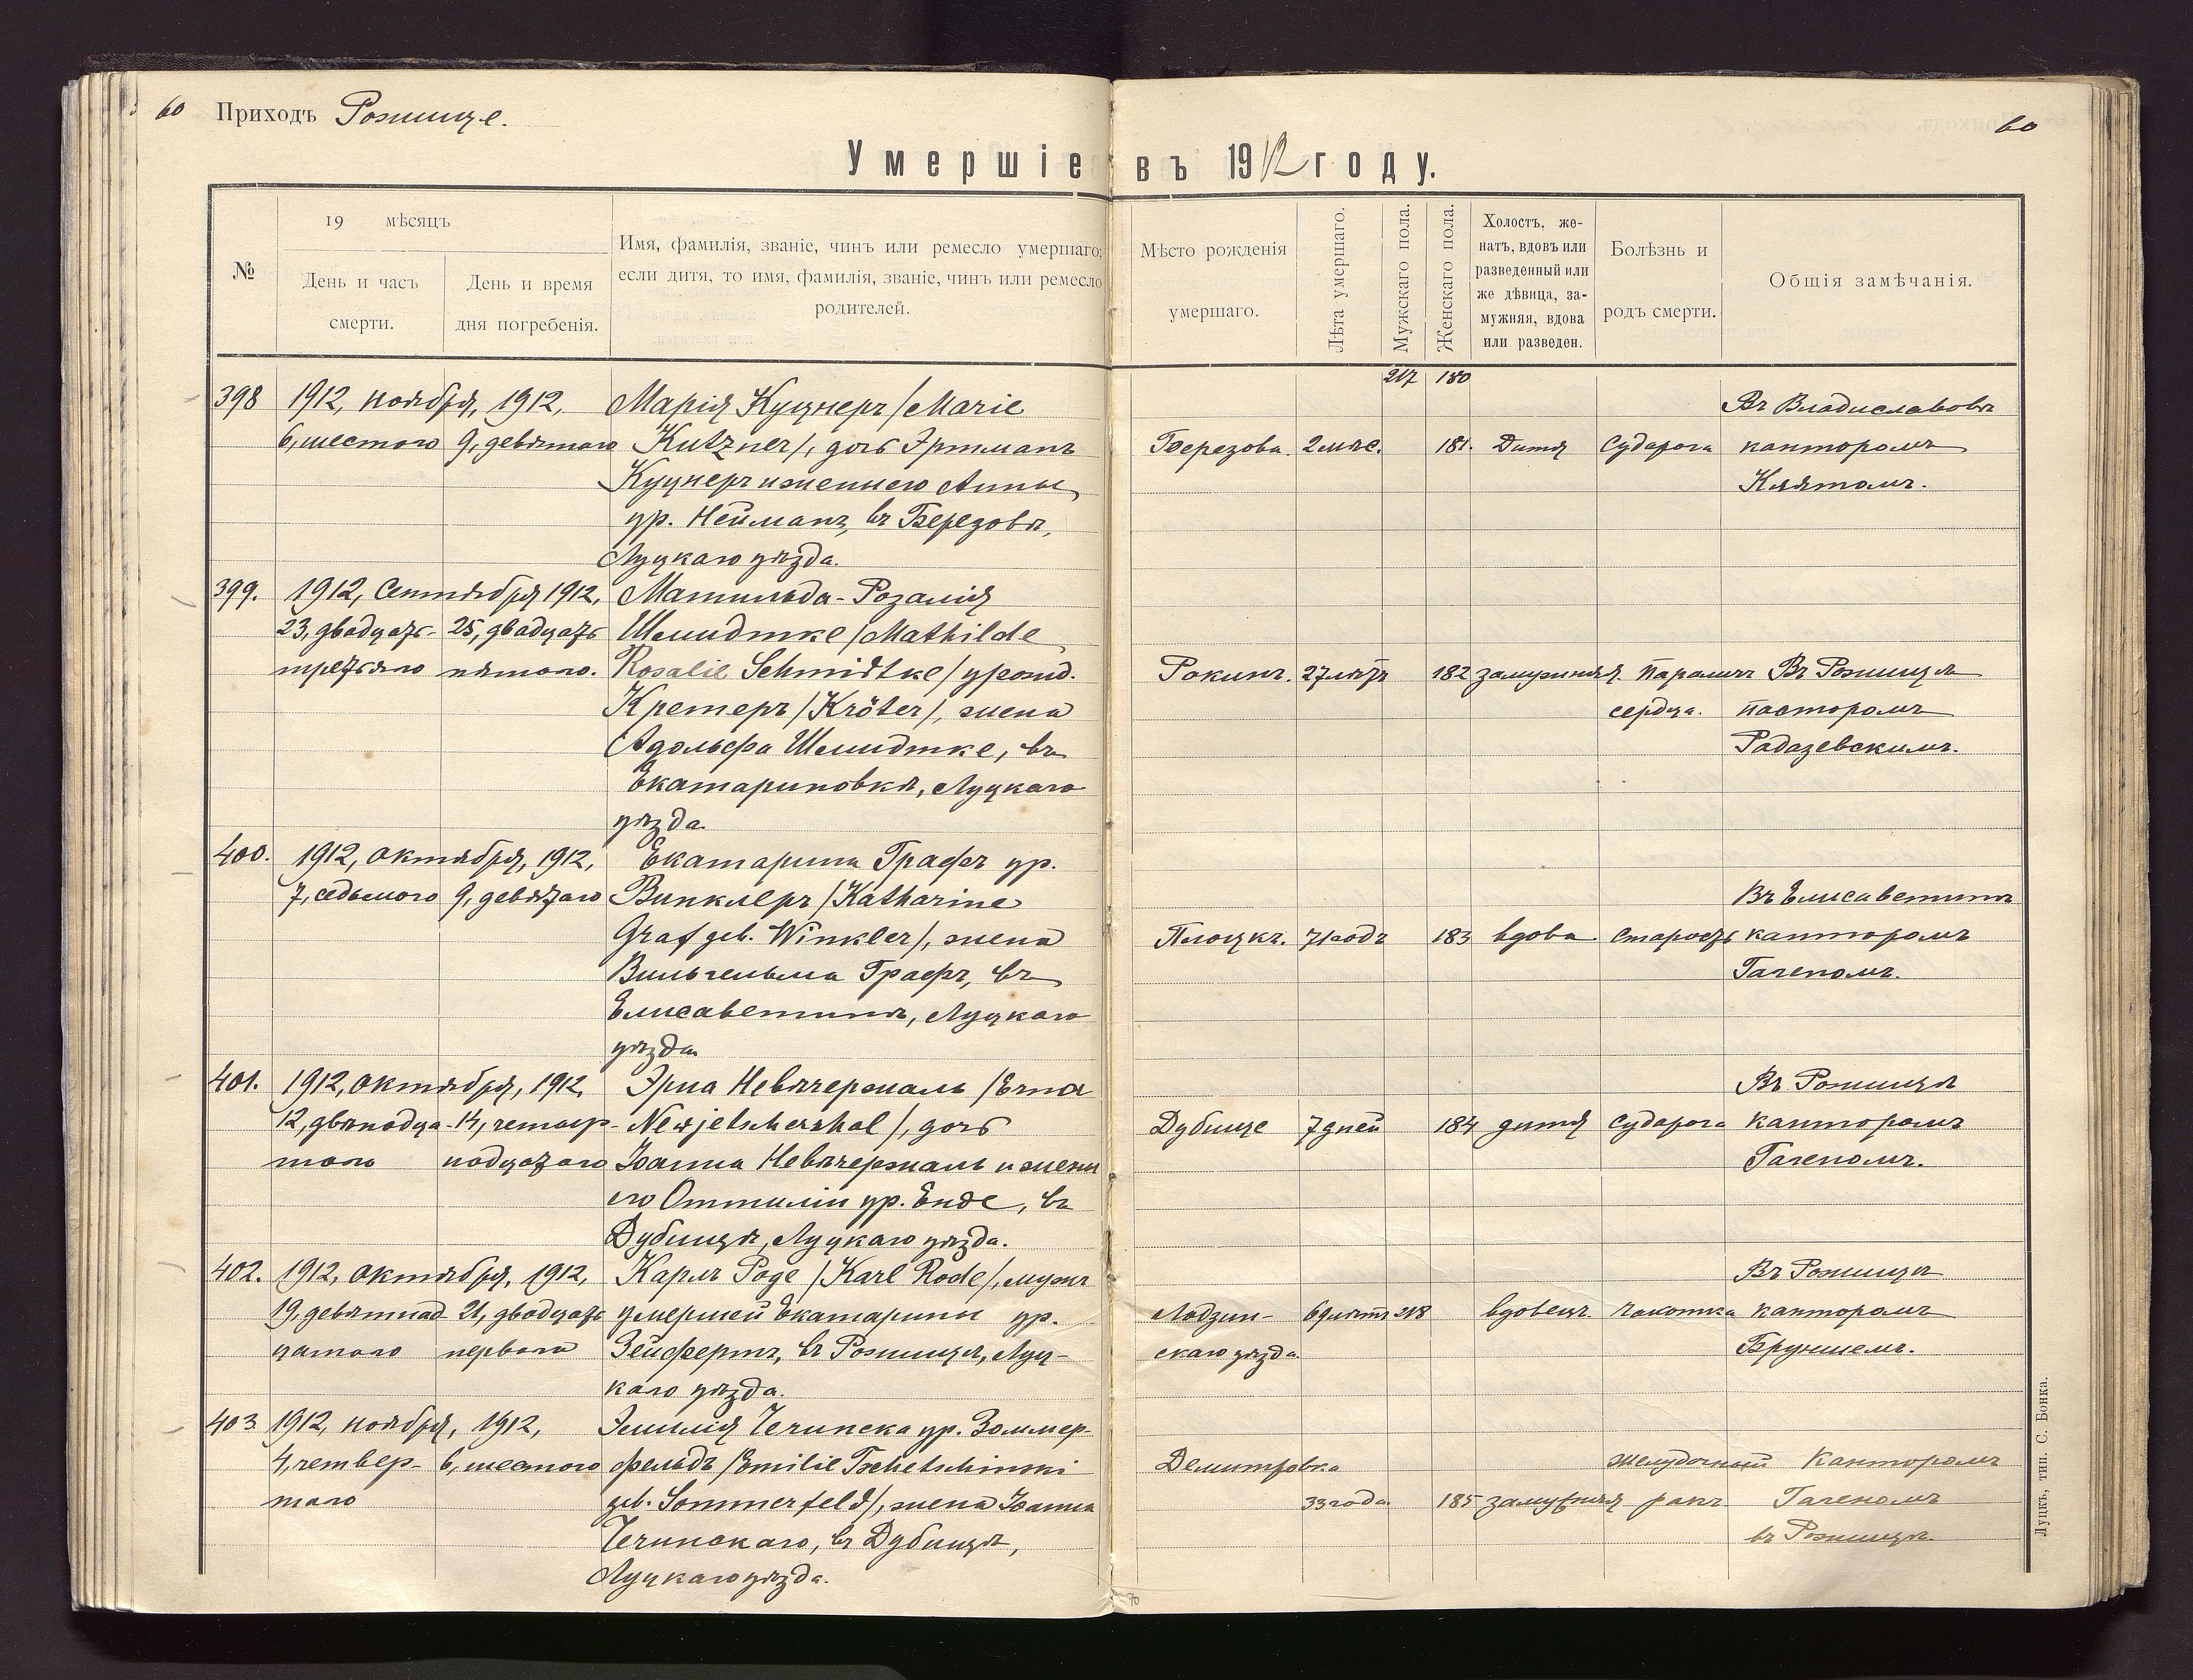 60 Приходъ Рожище.
60
Умершіе въ 1912 году.
№
19 мѣсяцъ
День и часъ
смерти.
День и время
дня погребенія.
Имя, фамилія, званіе, чинъ или ремесло умершаго;
если дитя, то имя, фамилія, званіе, чинъ или ремесло
родителей.
Мѣсто рожденія
умершаго.
Лѣта умершаго.
Мужскаго пола.
Женскаго пола.
Холостъ, же-
натъ, вдовъ или
разведенный или
же дѣвица, за-
мужняя, вдова
или разведен.
Болѣзнь и
родъ смерти.
Общія замѣчанія.
217 180
398 1912, ноября, 1912, Марія Куцнеръ /Marie
6, шестого 9, девятаго Kutzner/, дочь Эртманъ
Куцнеръ и жены его Анны
ур. Нейманъ, въ Березовѣ,
Луцкаго уѣзда.
Березова. 2 мѣс. 181. Дитя Судорога
Въ Владиславовѣ
канторомъ
Клятомъ.
399. 1912, Сентября 1912, Матильда-Розалія
23, двадцать- 25, двадцать Шмидтке /Mathilde
третьяго пятого. Rosalie Schmidtke/ урожд.
Кретеръ /Kröter/, жена
Адольфа Шмидтке, въ
Екатариновкѣ, Луцкаго
уѣзда.
Рокинъ. 27 лѣтъ 182 замужняя. Параличъ Въ Рожищѣ
сердца. пасторомъ
Радазевскимъ.
400. 1912, октября, 1912, Екатарина Графъ ур.
7, седьмого 9, девятаго Винклеръ /Katharine
Graf geb. Winkler/, жена
Вильгельма Графъ, въ
Елисаветинѣ, Луцкаго
уѣзда.
Въ Елисаветинѣ
Плоцкъ. 71 годъ 183 вдова. старость канторомъ
Гагеномъ.
401. 1912, октября, 1912, Эрна Невѣчержаль /Erna
12, двѣнадца- 14, четыр- Newjetscherzhal/, дочь
таго надцатаго Іоанна Невѣчержаль и жены
его Оттиліи ур. Енде, въ
Дубищѣ, Луцкаго уѣзда.
Въ Рожищѣ
Дубище 7 дней 184 дитя Судорога канторомъ
Гагеномъ.
402. 1912, октября, 1912, Карлъ Роде /Karl Rode/, мужъ
19, девятнад- 21, двадцать умершей Екатарины ур.
цатаго перваго Зейфертъ, въ Рожищѣ, Луц-
каго уѣзда.
Въ Рожищѣ
Лодзин- 69 лѣтъ 218 вдовецъ. чахотка канторомъ
скаго уѣзда. Бруншемъ.
403 1912, ноября, 1912, Эмилія Чечинска ур. Зоммер-
4, четвер- 6, шестого фельдъ /Emilie Tschetschinski
таго geb. Sommerfeld/, жена Іоанна
Чечинскаго, въ Дубищѣ,
Луцкаго уѣзда.
Демитровка желудочный Канторомъ
33 года 185 замужняя ракъ Гагеномъ
въ Рожищѣ.
Луцкъ, тип. С. Бонка.
70